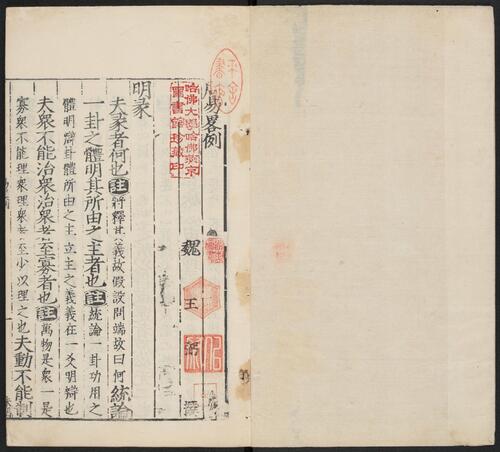 周易畧例
魏
王
弼
明彖
夫彖者何也註將釋其義故假設問端故曰何統論
一卦之體明其所由之主者也註統論一卦功用之
體明辯卦體所由之主立主之義義在一爻明辯也
夫衆不能治衆治衆者至寡者也註萬物是衆一是
寡衆不能理衆理衆者至少以理之也夫動不能制
哈佛大學哈佛燕京
圖書館珍藏印